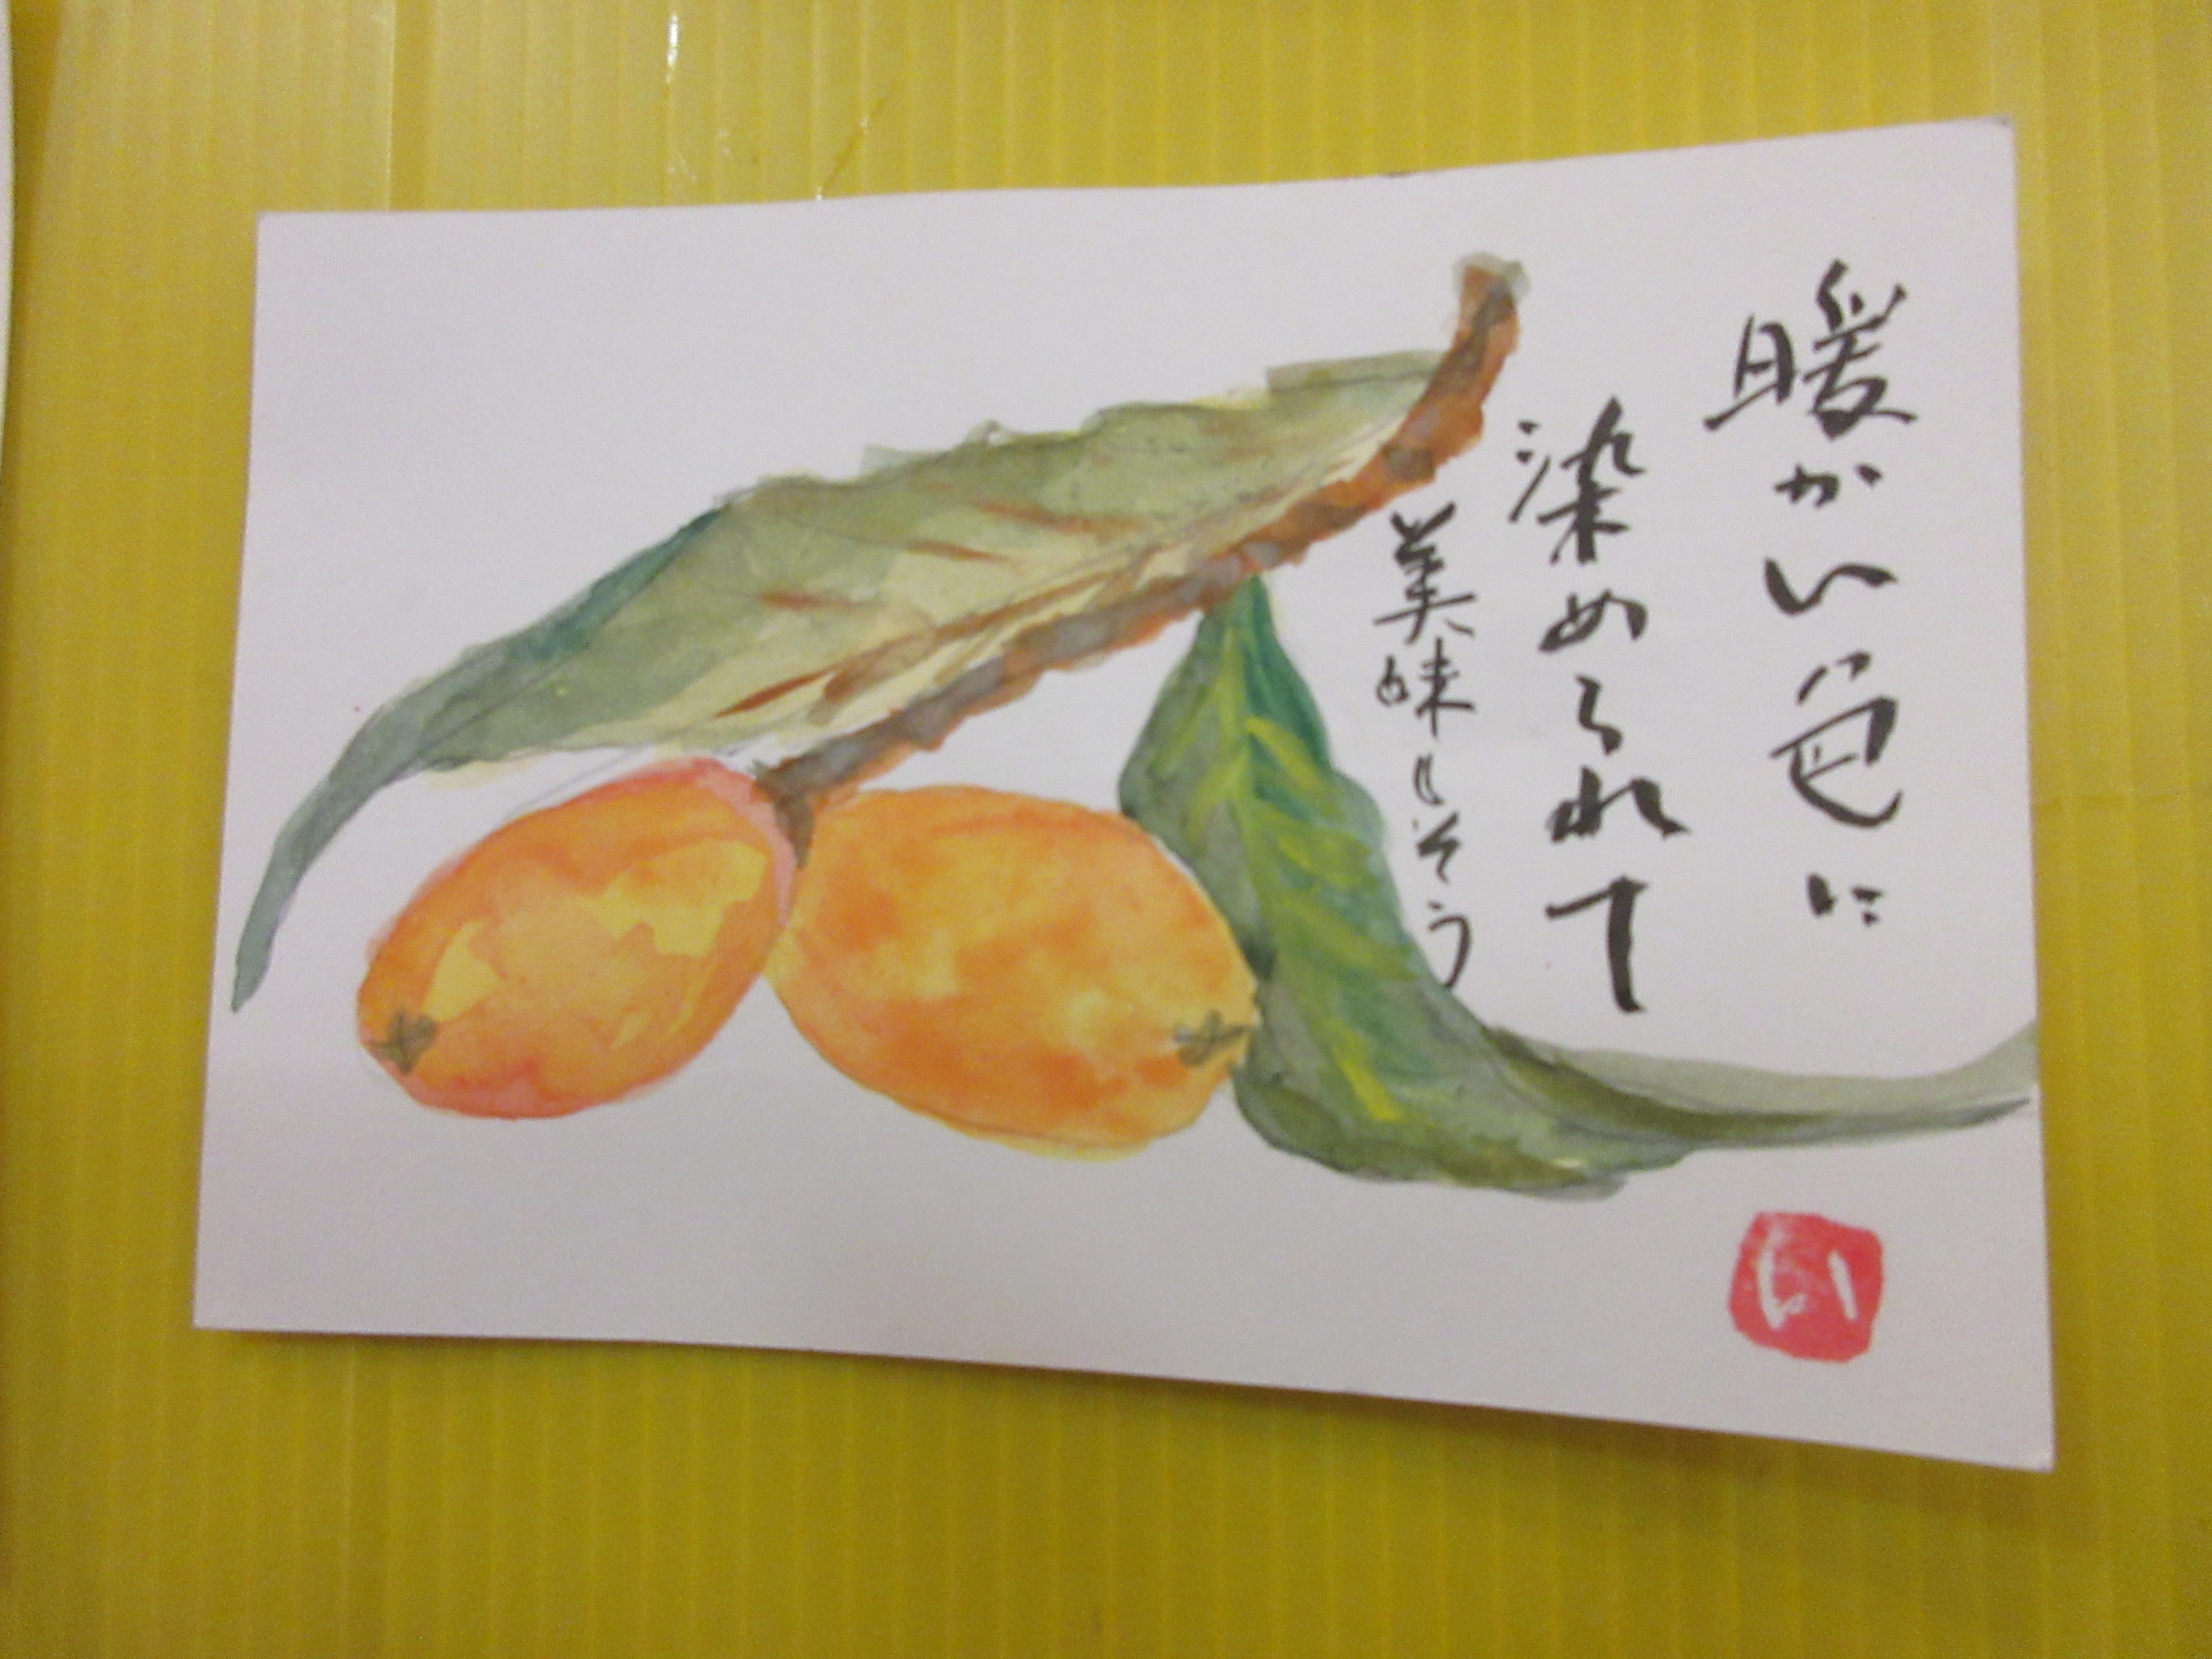 暖かい色に
染められて
美味しそう
い